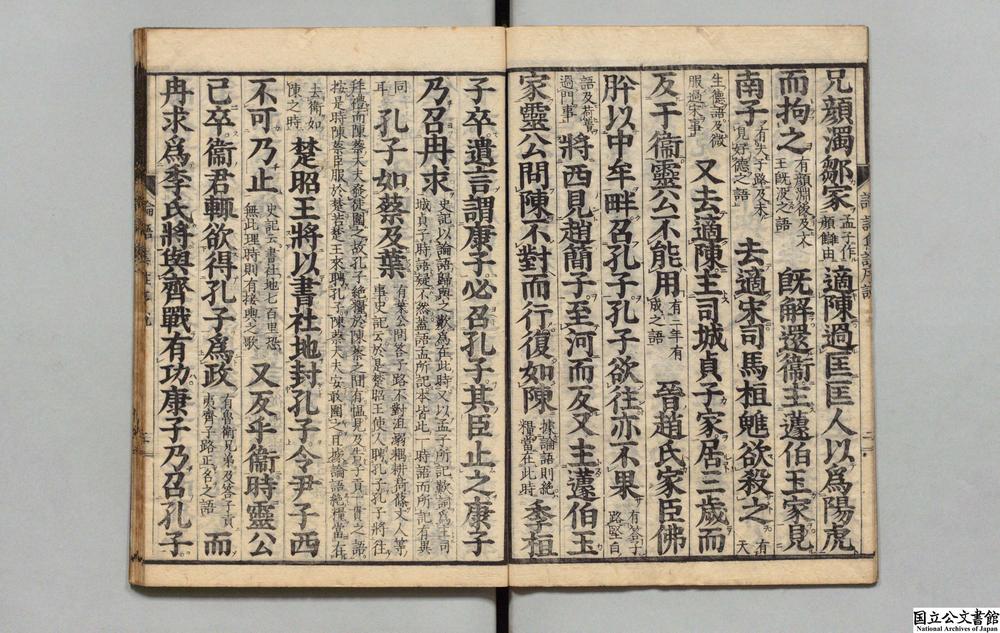 兄顔濁鄒家孟子作顔讎由適陳過匡匡人以爲陽虎
而拘之有顔淵後及文王旣没之語旣解還衞主蘧伯玉家見
南子有矢子路及未見好德之語去適宋司馬桓魋欲殺之有天
生德語及微服過宋事又去適陳主司城貞子家居三歲而
反于衞靈公不能用有三年有成之語晉趙氏家臣佛
肸以中牟畔召孔子孔子欲往亦不果有答子路堅白
語及荷蕢過門事將西見趙簡子至河而反又主蘧伯玉
家靈公問陳不對而行復如陳據論語則絶糧當在此時季桓
子卒遺言謂康子必召孔子其臣止之康子
乃召冉求史記以論語歸與之歎爲在此時又以孟子所記歎詞爲主司城貞子時語疑不然蓋語孟所記本皆此一時語而所記有異
同耳孔子如蔡及葉有葉公問答子路不對沮溺耦耕荷蓧丈人等事史記云於是楚昭王使人聘孔子孔子將往
拜禮而陳蔡大夫發徒圍之故孔子絶糧於陳蔡之間有慍見及告子貢一貫之語按是時陳蔡臣服於楚若楚王來聘孔子陳蔡大夫安敢圍之且據論語絶糧當在
去衞如陳之時楚昭王將以書社地封孔子令尹子西
不可乃止史記云書社地七百里恐無此理時則有接輿之歌又反乎衞時靈公
已卒衞君輒欲得孔子爲政有魯衞兄弟及答子貢夷齊子路正名之語而
冉求爲季氏將與齊戰有功康子乃召孔子
国立公文書館
National Archives of Japan